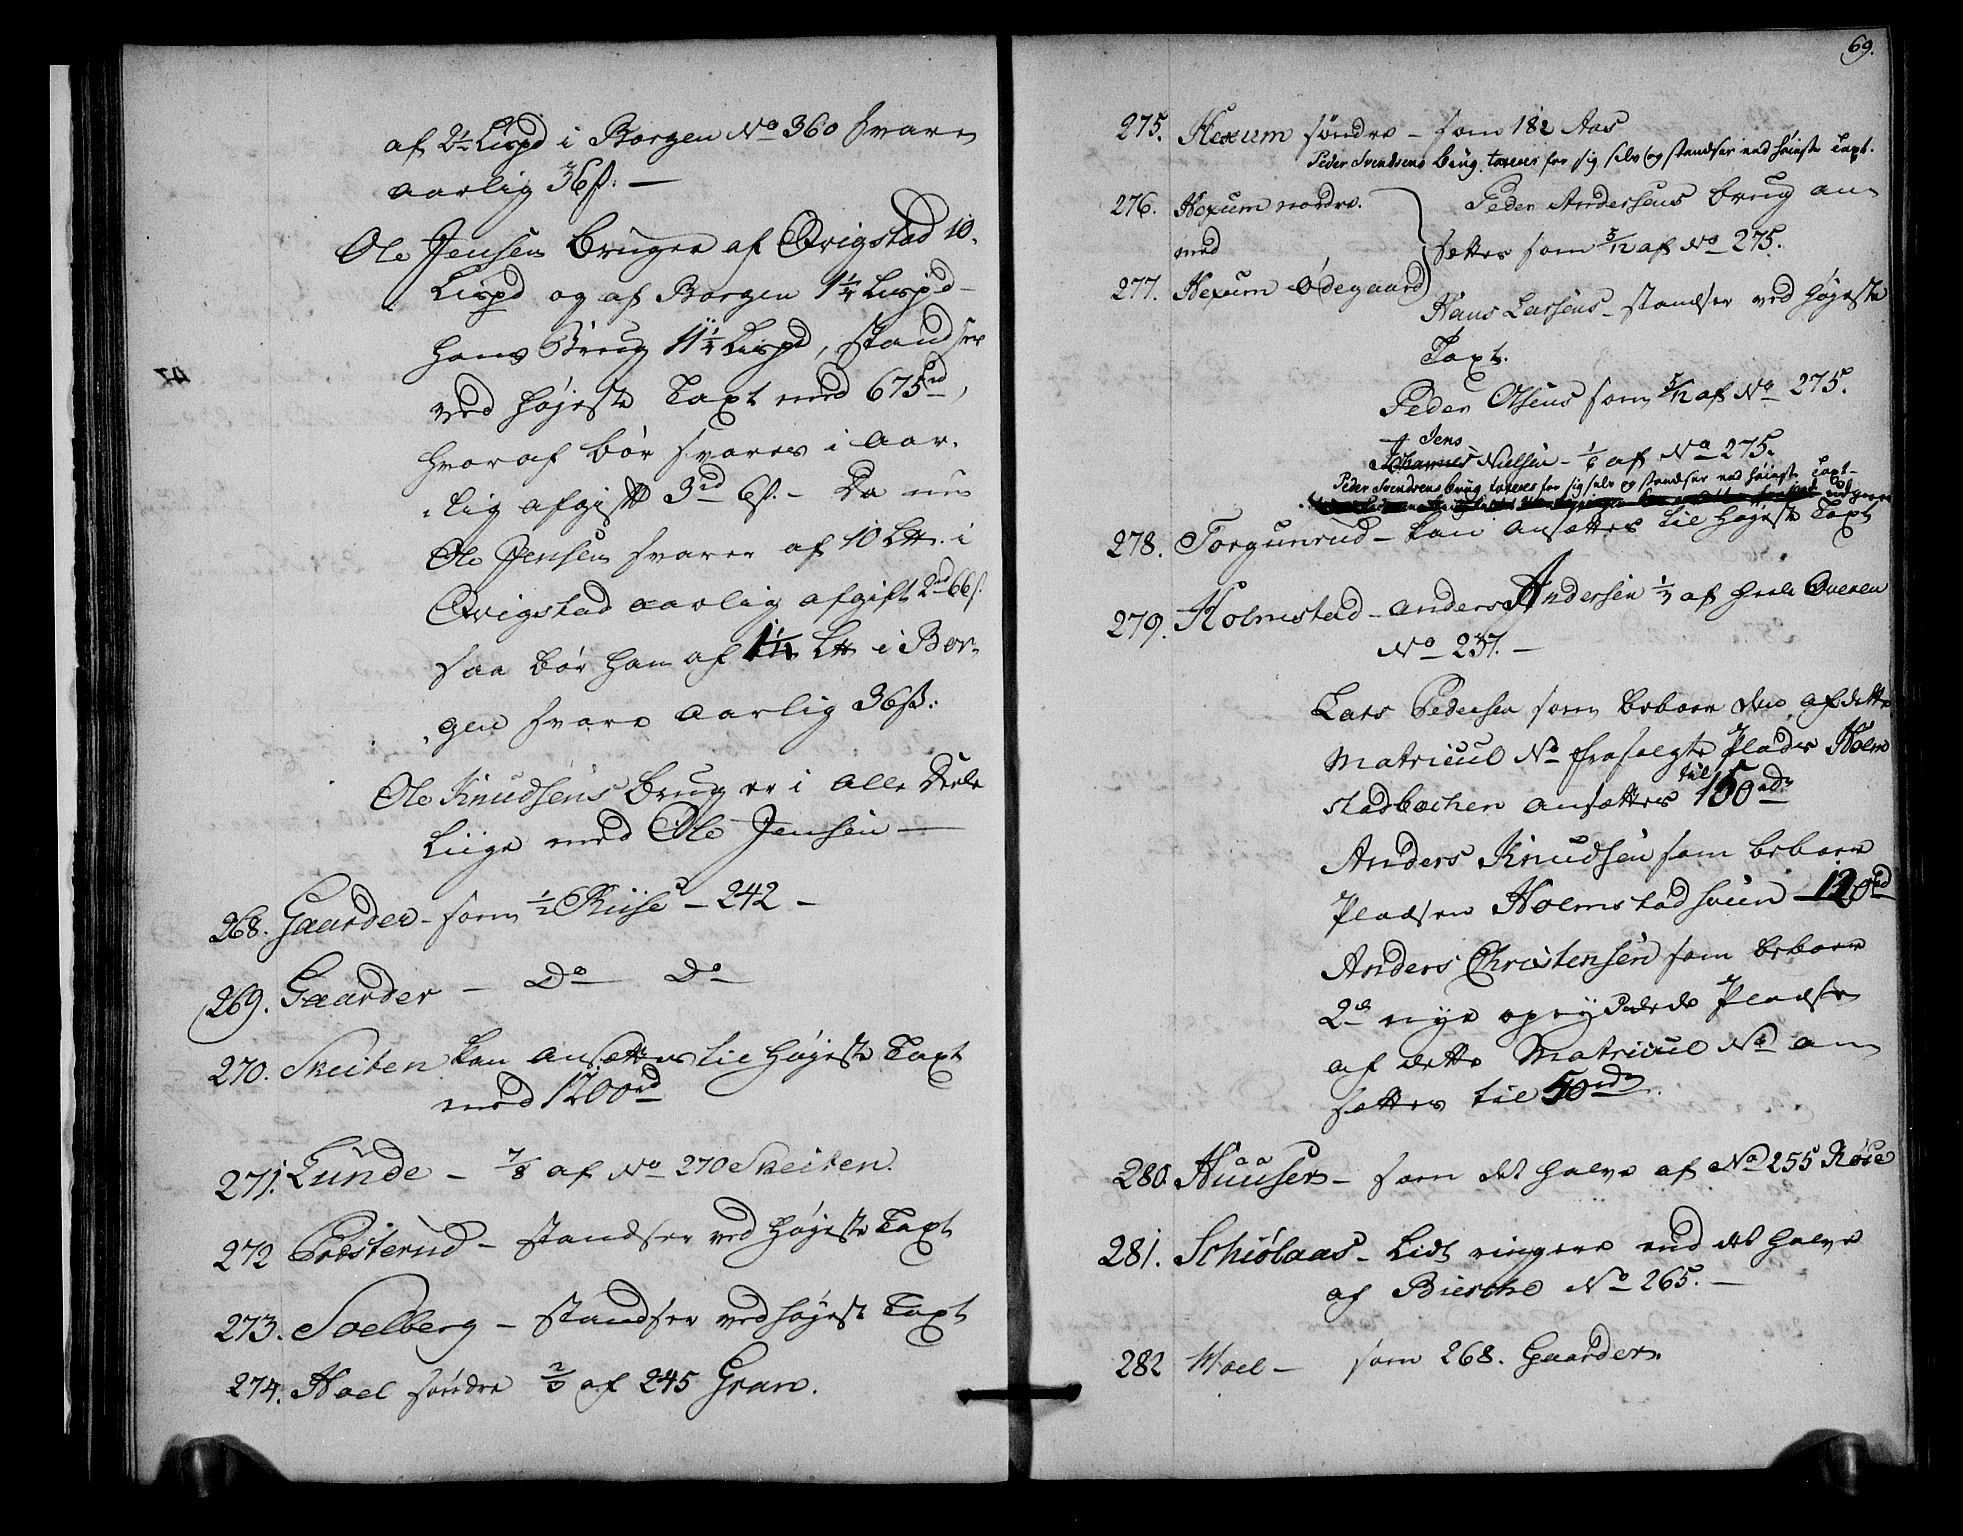 af 2½ Lispd i Borgen No 360 svare
aarlig 36 ß. —
Ole Jensen bruger af Qvigstad 10.
Lispd og af Borgen 1¼ Lispd
hans Brug 11¼ Lispd, standser
ved højeste Taxt med 675 rd,
hvoraf bør svares i aar-
lig afgift 3 rd 6 ß. — Da nu
Ole Jensen svarer af 10 L℔ i
Qvigstad aarlig afgift 2 rd 66 ß.
saa bør han af 1¼ L℔ i Bor-
gen svare aarlig 36 ß.
Ole Knudsens brug er i alle Deele
liige med Ole Jensen —
268. Gaarder — som ½ Riise — 242 —
269. Gaarder — Do Do
270. Skeiten kan ansættes til højeste Taxt
med 1200 rd
271. Lunde — 7/8 af No 270 Skeiten.
272 Præsterud — standser ved højeste Taxt
273. Soelberg — standser ved højeste Taxt
274. Hoel søndre 2/3 af 245 Gran.
69.
275. Hexum søndre — som 182 Aas
Peder Svendsens brug taxeres for sig selv og standser ved høieste Taxt.
276. Hexum nordre. Peder Andersens brug an-
med sættes som 5/12 af No 275.
277. Hexum Ødegaard
Hans Larsens — standser ved højeste
Taxt.
Peder Olsens som 5/12 af No 275.
Jens
Johannes Nielsen — 1/6 af No 275.
Peder Svendsens brug taxeres for sig selv og standser ved høieste Taxt —
278. Torgunrud — kan ansættes til højeste Taxt
279. Holmstad — Anders Andersen ½ af heele Qveren
No 237. —
Lars Pedersen som beboer den af dette
Matricul No frasolgte Plads Holm
til
stadbachen ansættes 150 rdr
Anders Knudsen som beboer
Pladsen Holmstadhuun 120 rd
Anders Christensen som beboer
2de nye opryddede Pladser
af dette Matricul No an-
sættes til 50 rdr.
280. Huuser — som det halve af No 255 Røise
281. Schiølaas — lidt ringere end det halve
af Biesche No 265. —
282 Moel — som 268. Gaarder.